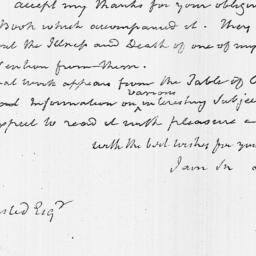 accept my thanks for your obligin
Book which accompanied it. They
the Illness and Death of one of my
tention from them.
al work appears from the Table of C
various
Information on interesting Subjec
expect to read it with pleasure a
with the best wishes for you
I am Sr
sted Esqr